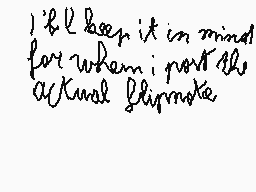 I'll keep it in mind
for when i post the
actual flipnote